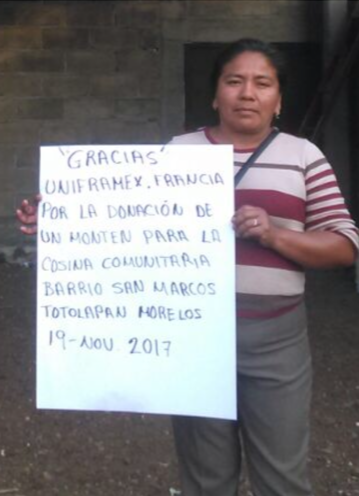 "GRACIAS"
UNIFRAMEX, FRANCIA
POR LA DONACIÓN DE
UN MONTEN PARA LA
COSINA COMUNITARIA
BARRIO SAN MARCOS
TOTOLAPAN MORELOS
19-NOV. 2017